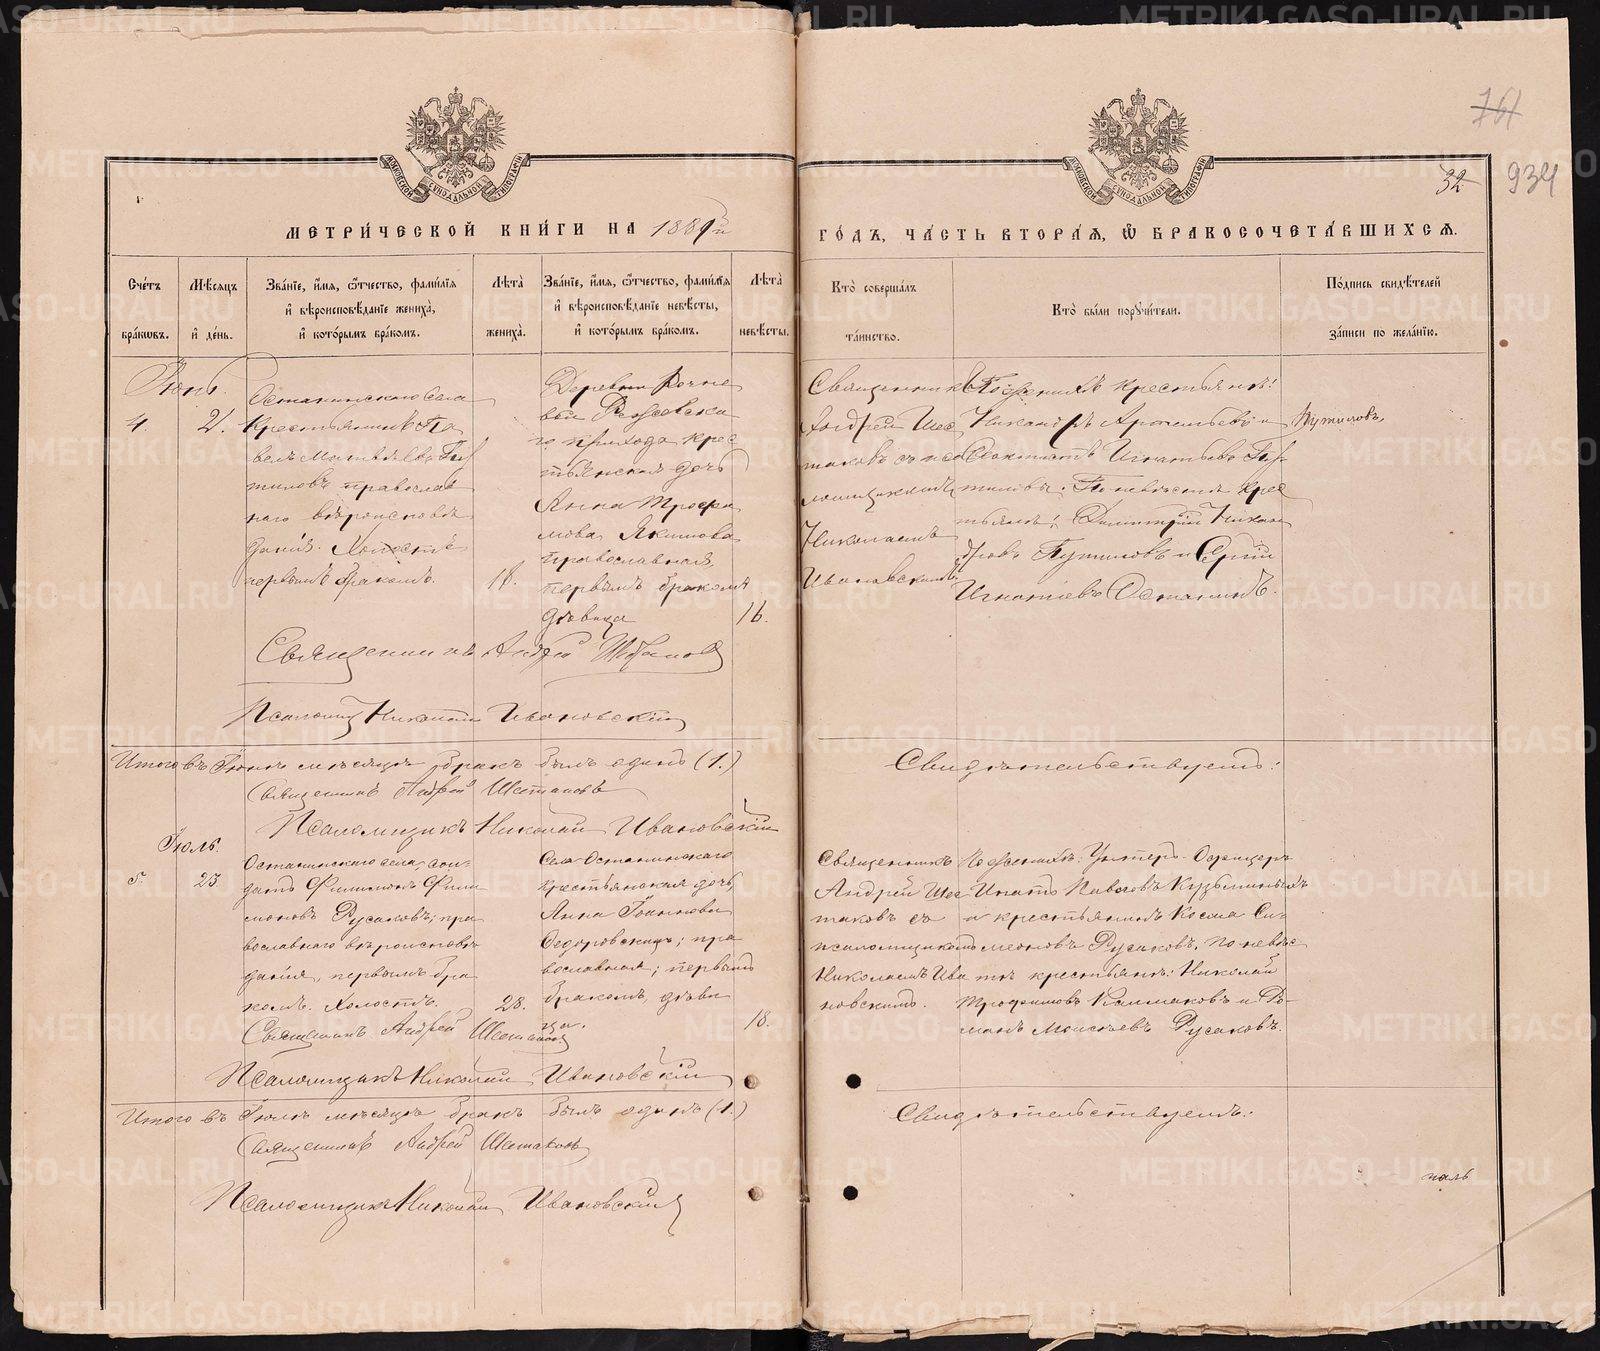 METRIKI.GASO-URAL.RU
934
32
МЕТРИ́ЧЕСКОЙ КНИ́ГИ НА 1889й
ГО́ДЪ, ЧА́СТЬ ВТОРА́Я, Ѿ БРАКОСОЧЕТА́ВШИХСЯ.
Сче́тъ бра́кѡвъ.
Мѣ́сяцъ и҆ де́нь.
Зва́нїе, и҆́мя, ѻ҆́тчество, фами́лїя и҆ вѣроисповѣ́данїе жениха̀, и҆ кото́рымъ бра́комъ.
Лѣ́та жениха̀.
Зва́нїе, и҆́мя, ѻ҆́тчество, фами́лїя и҆ вѣроисповѣ́данїе невѣ́сты, и҆ кото́рымъ бра́комъ.
Лѣ́та невѣ́сты.
Кто̀ соверша́лъ та́инство.
Кто̀ бы́ли порꙋчи́тели.
По́дпись свидѣ́телей за́писи по жела́нїю.
Іюнь.
4.
2.
Останинскаго села
крестьянинъ Па
велъ Матвѣевъ Пу
тиловъ православ
наго вѣроисповѣ
данія. Холостъ
первымъ бракомъ.
18.
Деревни
Режевска
го прихода крес
тьянская дочь
Анна Трофи
мова Якимова
православная,
первымъ бракомъ
дѣвица
16.
Священникъ
Андрей Шес
таковъ съ пса
ломщикомъ
Николаемъ
Ивановскимъ
По женихѣ крестьяне:
Никандръ Артемьевъ и
Игнатьевъ Пу
тиловы. По невѣстѣ крес
тьяне: Димитрій Никан
дровъ Путиловъ и Сергій
Игнатіевъ Останинъ.
Путиловъ,
Священникъ Андрей Шестаковъ
Псаломщ Николай Ивановскій
Итого въ Іюнѣ мѣсяцѣ бракъ былъ одинъ (1.)
Свидѣтельствуемъ:
Священникъ Андрей Шестаковъ
Псаломщикъ Николай Ивановскій
Іюль.
5.
23
Останинскаго села, сол-
датъ Филимонъ Фили
моновъ Русаковъ; пра
вославнаго вѣроисповѣ
данія, первымъ бра
комъ. Холостъ.
28.
Села Останинскаго
крестьянская дочь
Анна Іоаннова
Федоровскихъ; пра
вославная; первымъ
бракомъ, дѣви
ца.
18.
Священникъ
Андрей Шес
таковъ съ
псаломщикомъ
Николаемъ Ива
новскимъ.
По женихѣ: Унтеръ-Офицеръ
Игнатъ Павловъ Кузьминыхъ
и крестьянинъ Косма Си-
меоновъ Русаковъ. По невѣс
тѣ крестьяне: Николай
Трофимовъ Калмаковъ и Ро-
манъ Моисеевъ Русаковъ.
Священникъ Андрей Шестаковъ
Псаломщикъ Николай Ивановскій
Итого въ Іюлѣ мѣсяцѣ бракъ былъ одинъ (1.)
Свидѣтельствуемъ:
Священникъ Андрей Шестаковъ
Псаломщикъ Николай Ивановскій